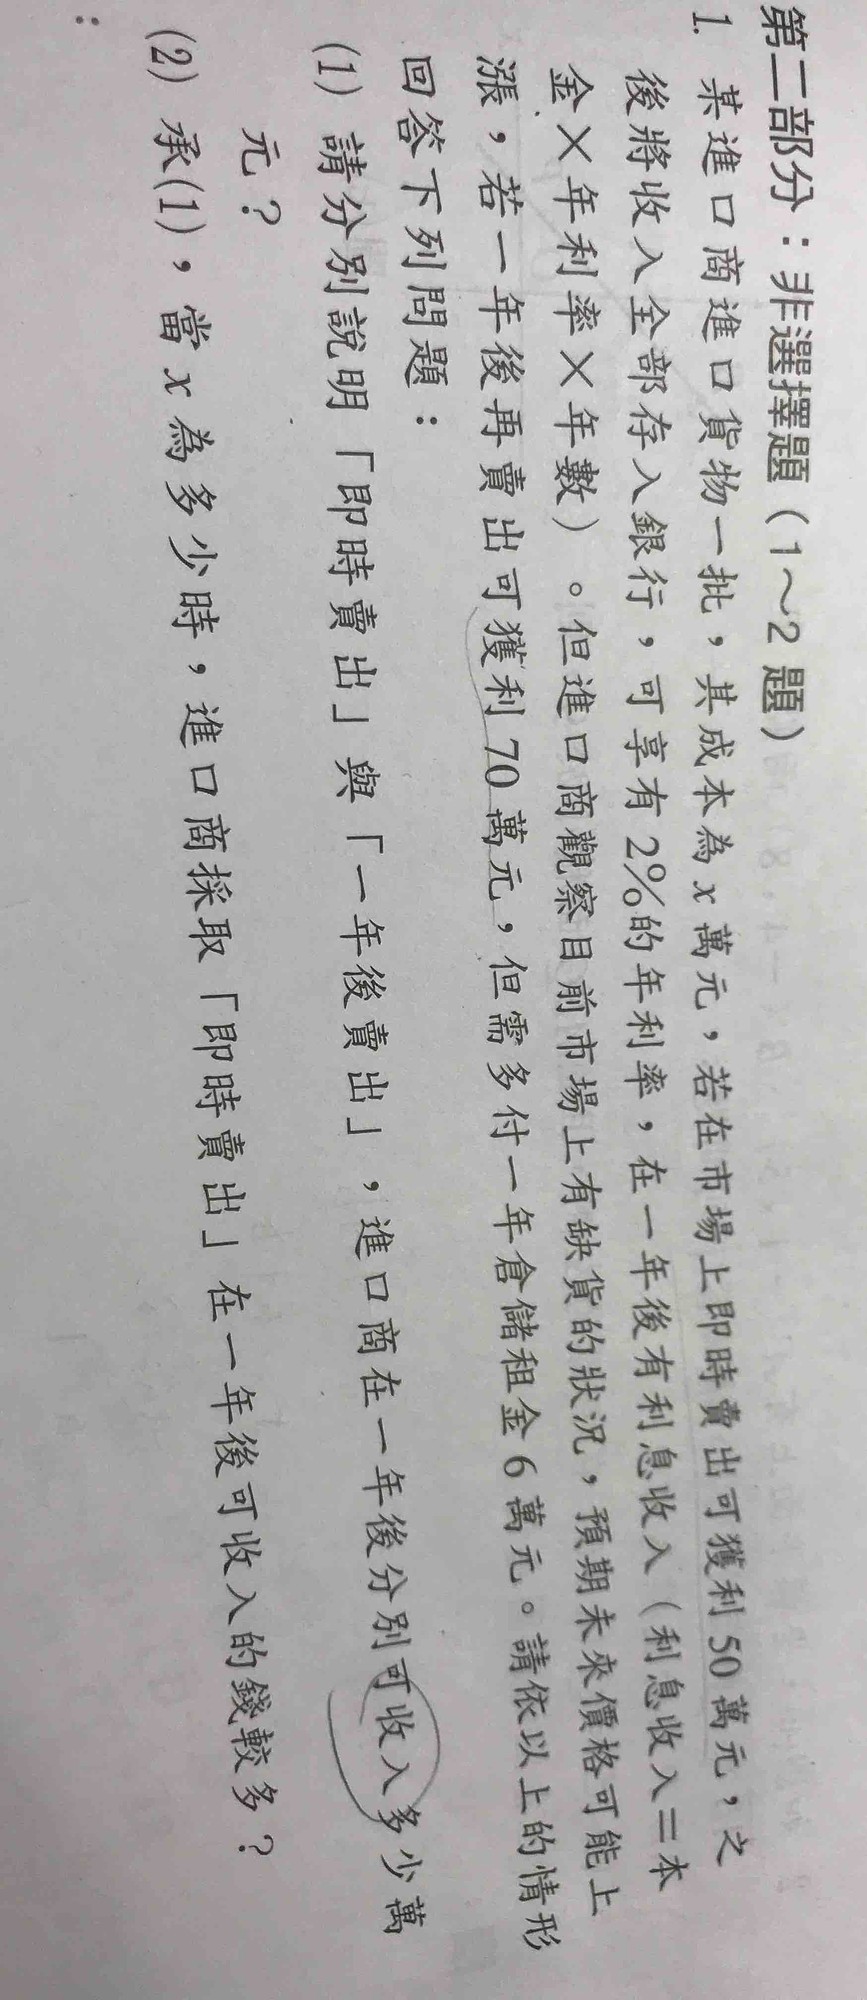 第二部分：非選擇題（1～2 題）
1. 某進口商進口貨物一批，其成本為 x 萬元，若在市場上即時賣出可獲利 50 萬元，之
後將收入全部存入銀行，可享有 2%的年利率，在一年後有利息收入（利息收入＝本
金×年利率×年數）。但進口商觀察目前市場上有缺貨的狀況，預期未來價格可能上
漲，若一年後再賣出可獲利 70 萬元，但需多付一年倉儲租金 6 萬元。請依以上的情形
回答下列問題：
(1) 請分別說明「即時賣出」與「一年後賣出」，進口商在一年後分別可收入多少萬
元？
(2) 承(1)，當 x 為多少時，進口商採取「即時賣出」在一年後可收入的錢較多？